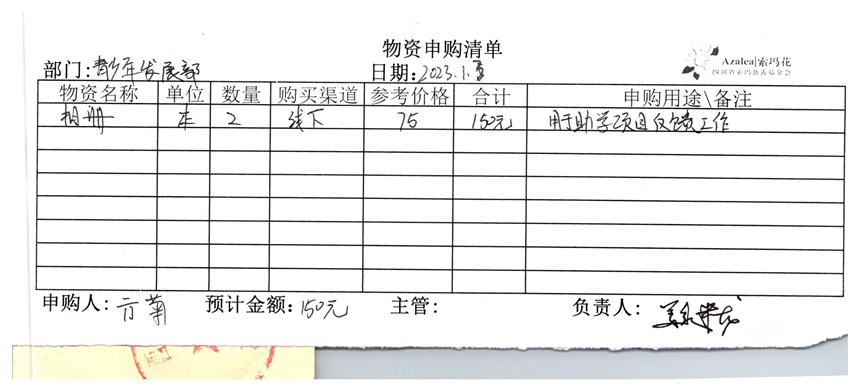 物资申购清单
Azalea|索玛花
四川省索玛慈善基金会
部门:青少年发展部 日期:2023.1.3
物资名称 单位 数量 购买渠道 参考价格 合计 申购用途\备注
相册 本 2 线下 75 150元 用于助学项目反馈工作
申购人: 预计金额:150元 主管: 负责人: